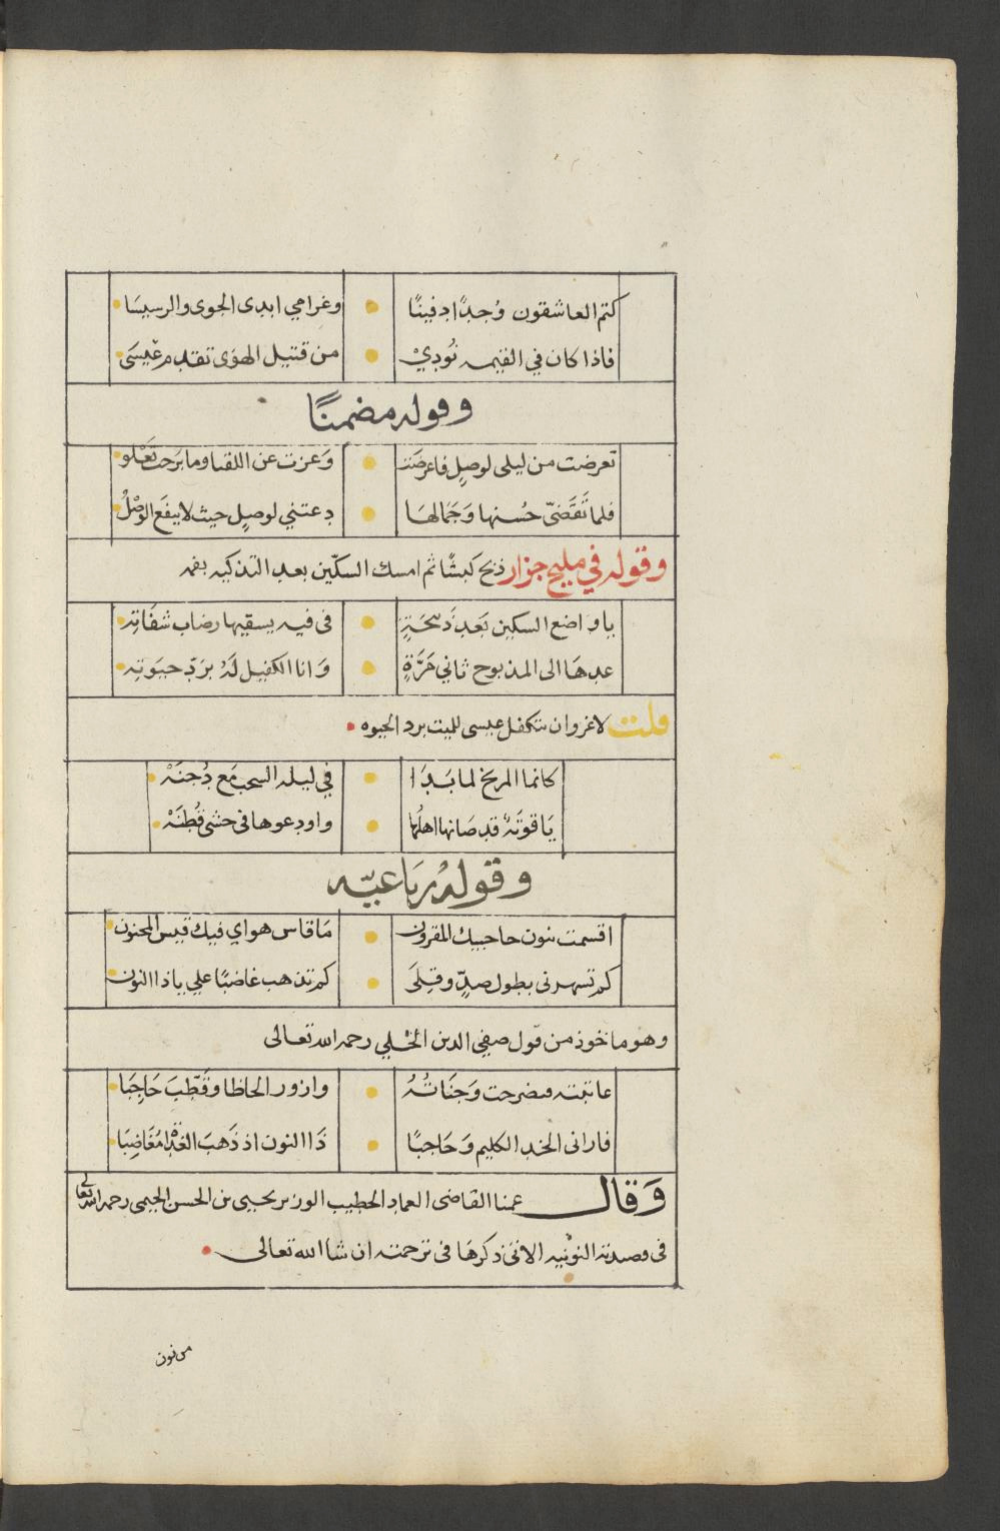 كتم العاشقون وُجدًا دفينًا وغرامي ابدى الجوى والرسيسَا
فاذا كان في القيمه نُودِيْ من قتيل الهوَى تقدم عيْسَى
وقوله مضمنًا
تعرضت من ليلى لوصلٍ فاعرضَت وَعزت عن اللقا وما برَحت تَعْلو
فلما تَقَضىّ حُسنها وَجَمالهَا دعتني لوصلٍ حيث لا ينفَع الوَصْلُ
وقوله في مليح جزار ذبح كبشًا ثم امسك السكّين بعد التذكيه بفمه
يا واضع السكين بَعد ذَبحَةٍ فى فيه يسقيها رضاب شفَاته
عدهَا الى المذبوح ثاني مَرَّةٍ وَانا الكفيل لَهُ برَدّ حبَوته
قلت لا غروان يتكفل عيسى للميت برد الحيوه
كانما المريخ لما بَدَا في ليله السحب مَع دُجنَهْ
يَاقوتَهٌ قد صَانها اهلُها واودعوها فى حشى قُطنَهْ
وقولهُ رُبَاعيّه
اقسمت بنون حاجبيك المقرون مَا قاس هواي فيك قيس المجنون
كم تسهرنى بطول صدٍّ وقِلَى كم تذهب غاضبًا علي ياذا النون
وهو ماخوذ من قول صفي الدين الحلي رحمه الله تعالى
عاتبته فتضرجت وَجنَاتُهُ وازور الحاظا وقَطّبَ حَاجِبَا
فارانى الخد الكليم وَحَاجبًا ذَا النون اذ ذَهبَ الغَدَاْمُغَاضِبَا
وَقال عمنا القاضى العماد الخطيب الوزير يحيى بن الحسن الحيمى رحمه الله تعالى
فى قصيدته النونيه الاتى ذكرهَا فى ترجمته ان شا الله تعالى
من نون